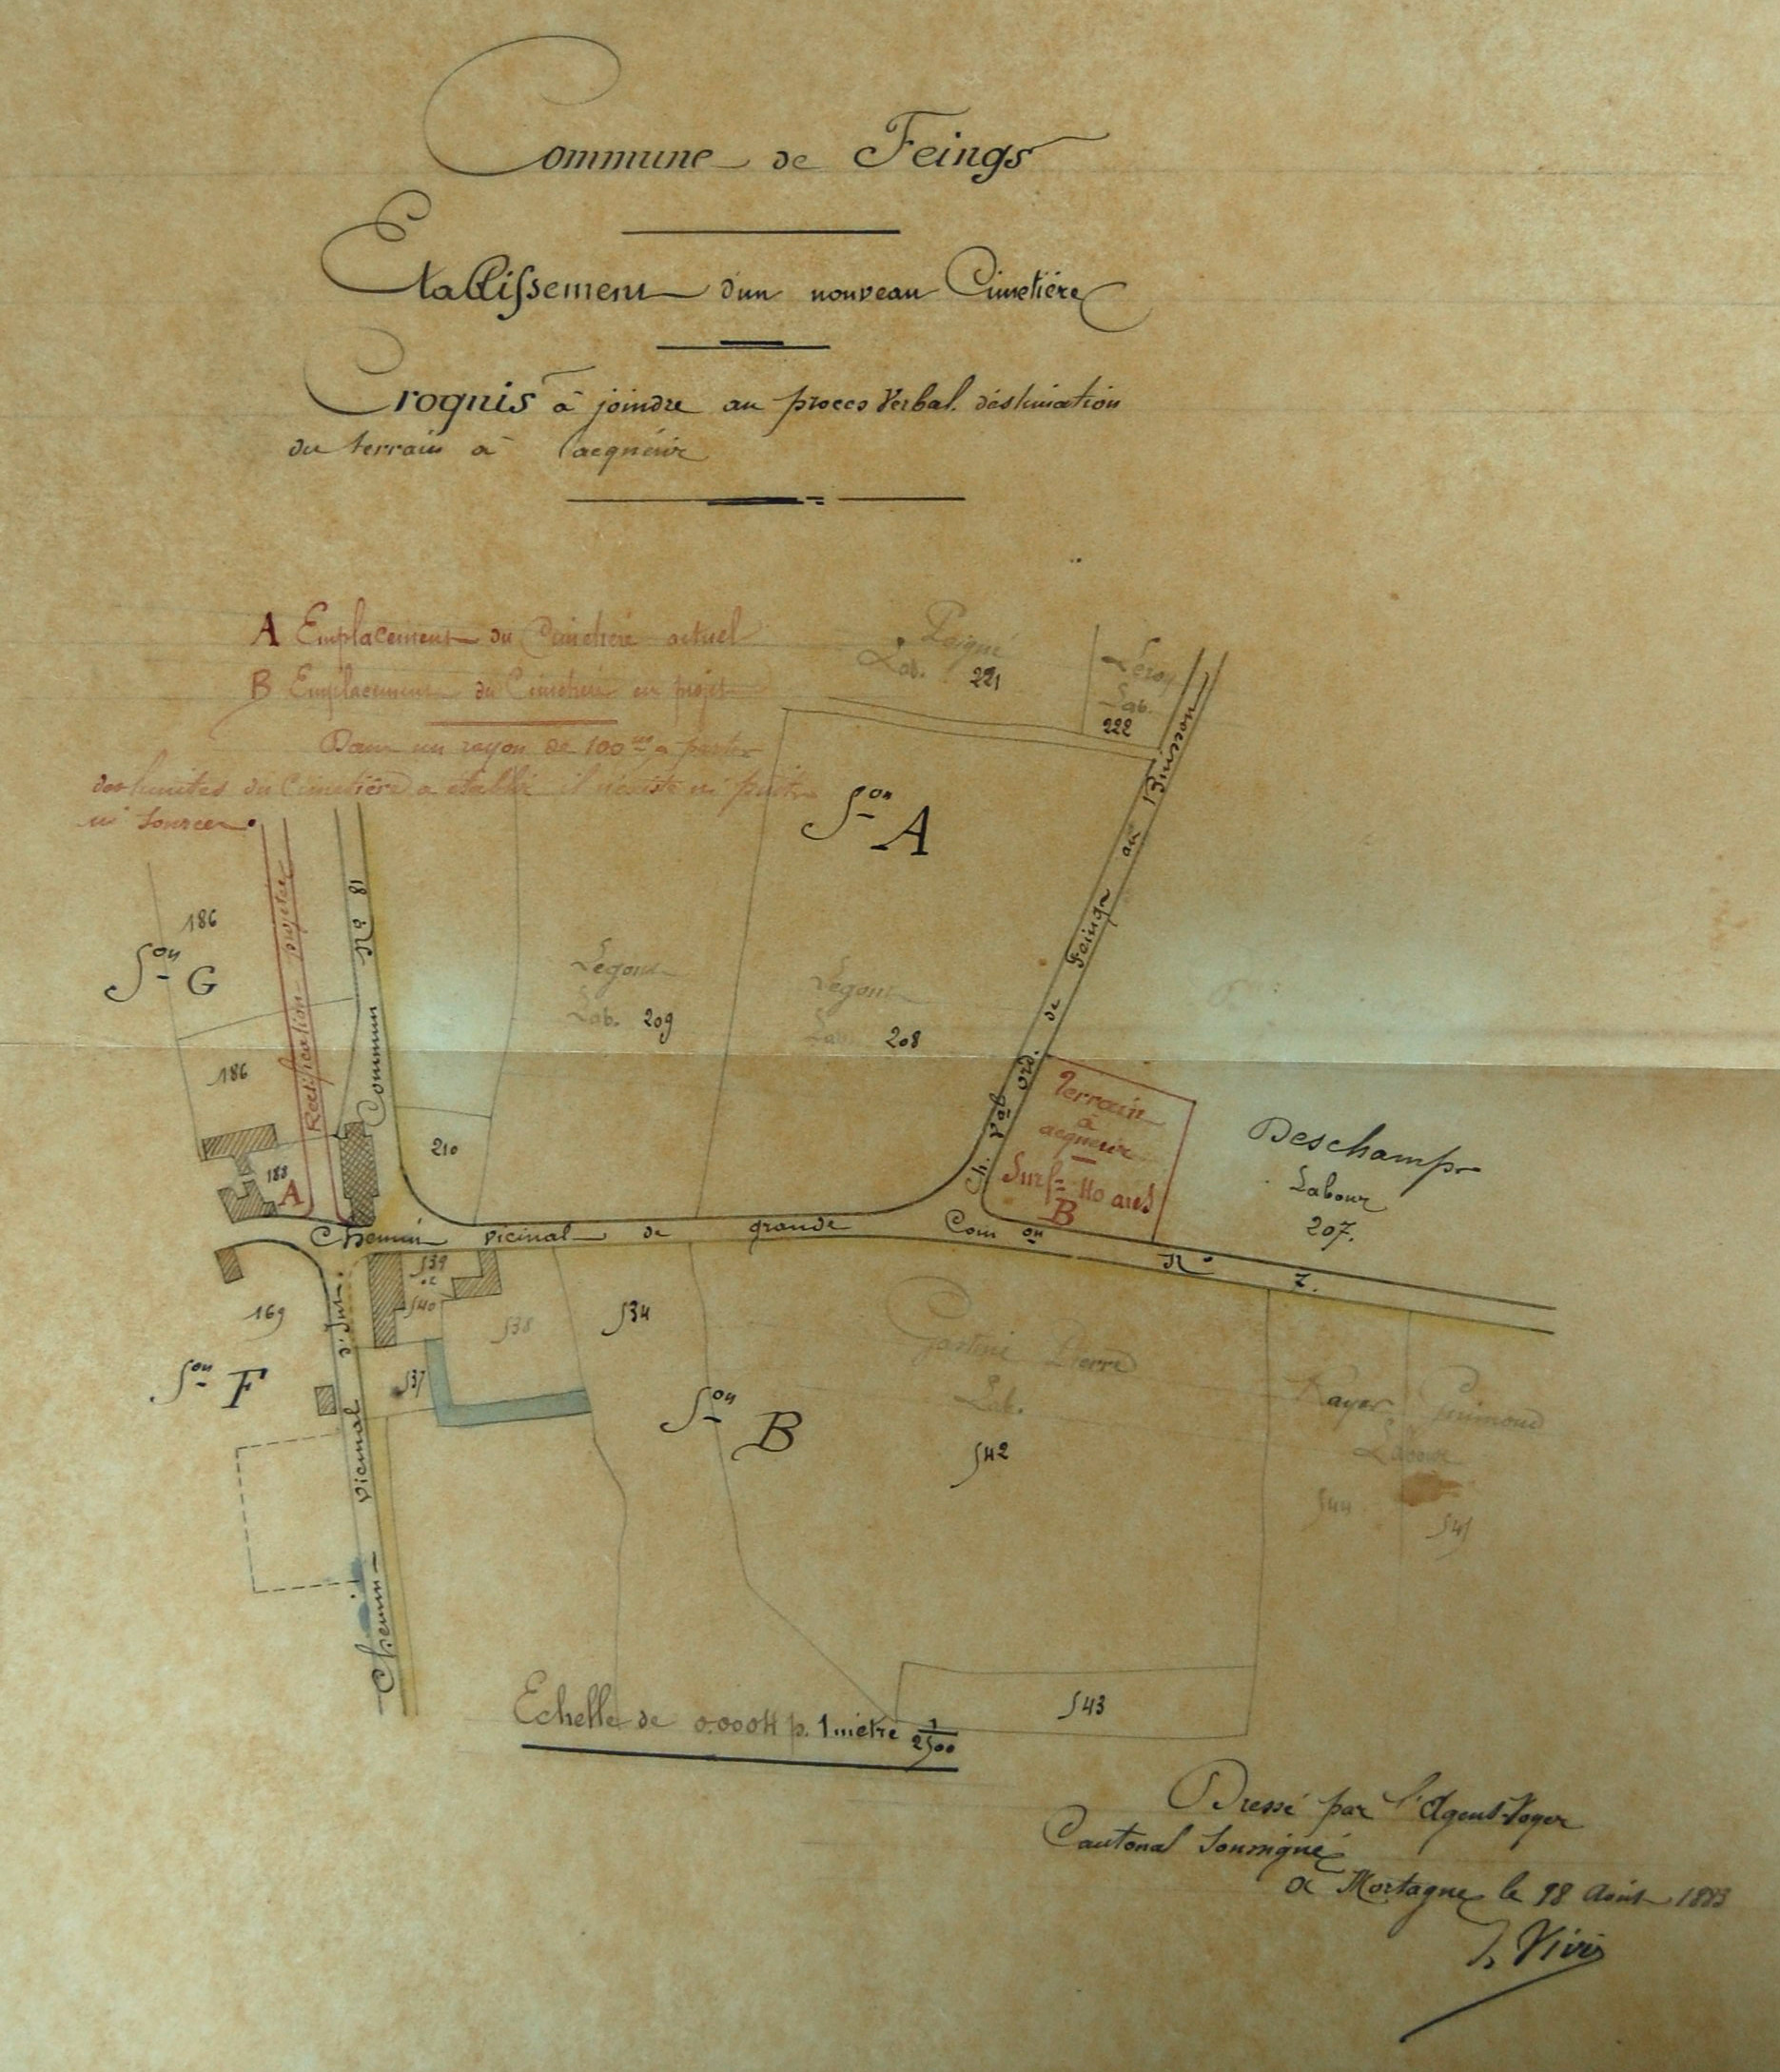 Commune de Feings
Etablissement d'un nouveau Cimetière
Croquis à joindre au procès Verbal d'éstimation
du terrain à acquérir
A Emplacement du Cimetière actuel
B Emplacement du Cimetière en projet
Dans un rayon de 100 m à partir
des limites du Cimetière à établir il n'existe ni puits
ni sources.
Peigné
Lab. 221
Leroy
Lab.
222
Son A
Ch. Val ord. de Feings au Buisson
186
Son G
186
188
A
Rectification projetée
Commun No 18
Legout
Lab. 209
Legout
Lab. 208
210
Terrain
à
acquérir
Surf. 40 ares
B
Deschamps
Labour
207.
Chemin vicinal de grande Com on No 7.
539
et
540
538
534
537
169
Son F
Chemin Vicinal
Son B
Gastine Pierre
Lab.
542
Labour
544
545
543
Echelle de 0.0004 p. 1 mètre 1/2500
Dressé par l'Agent-Voyer
Cantonal Soussigné
à Mortagne le 28 Août 1883